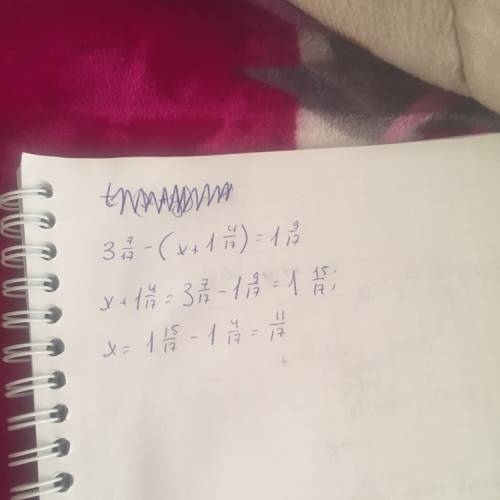 3 7/17 - (x + 1 4/17) = 1 9/17
x + 1 4/17 = 3 7/17 - 1 9/17 = 1 15/17;
x = 1 15/17 - 1 4/17 = 11/17